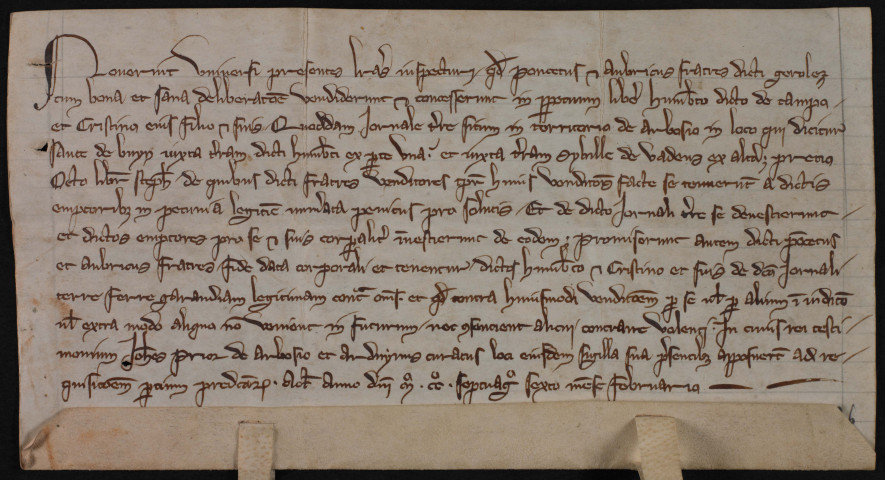 Noverint universi presentes litteras inspecturi qd Poncetus et Aubricus fratres dicti
cum bona et sana deliberatoe vendiderunt et concesserunt in perpetuum libere Humbto dicto de Campo
et Cristino eius filio et suis Quoddam Jornale tre situm in territorio de Arbosio in loco qui dicitur
de iuxta tram dicti Humbti ex pte una et iuxta tram Sybille de Vadens ex altera precio
Octo libr steph de quibus dicti fratres venditores huius venditois facte se tenuerut a dictis
emptoribz in pecunia legitime numerata penitus pro solutis Et de dicto Jornali tre se devestierunt
et dictos emptores pro se et suis corporalit investierunt de eodem promiserunt autem dicti Poncetus
et Aubricus fratres fide data corporali et tenentur dictis Humbto et Cristino et suis de dco Jornali
terre ferre garandiam legitimam cont oms et qd contra huiusmodi vendicoem p se vl p alium in iudico
vl extra modo aliquo no venient in futurum nec consencient alicui contraire volenti In cuius rei testi
monium Johes Prior de Arbosio et curatus loci eiusdem sigilla sua psentibz apposuerut ad re
quisicoem pcium predcarz Act Anno Dni mo cco septuago sexto mense februario
6